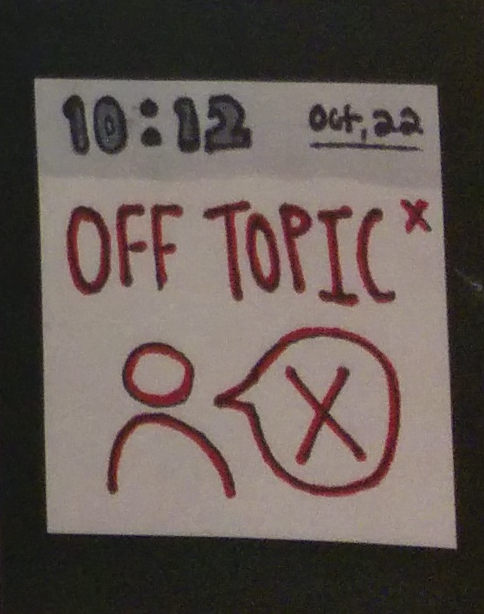 10:12 Oct, 22
OFF TOPIC x
X